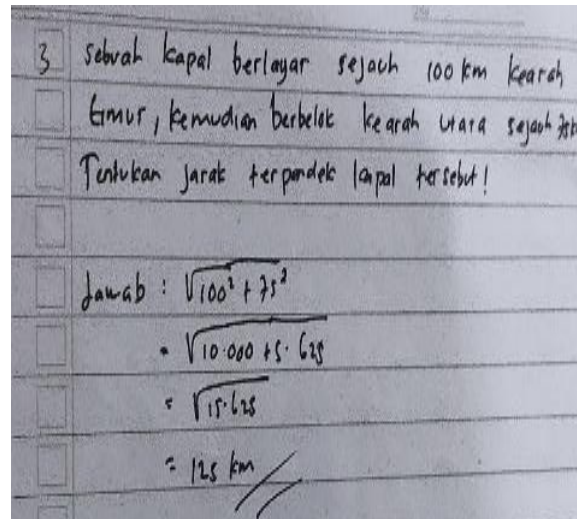 3 sebuah kapal berlayar sejauh 100 km kearah
timur, kemudian berbelok kearah utara sejauh 75k
Tentukan jarak terpendek kapal tersebut!
Jawab : √100² + 75²
= √10.000 + 5.625
= √15.625
= 125 km